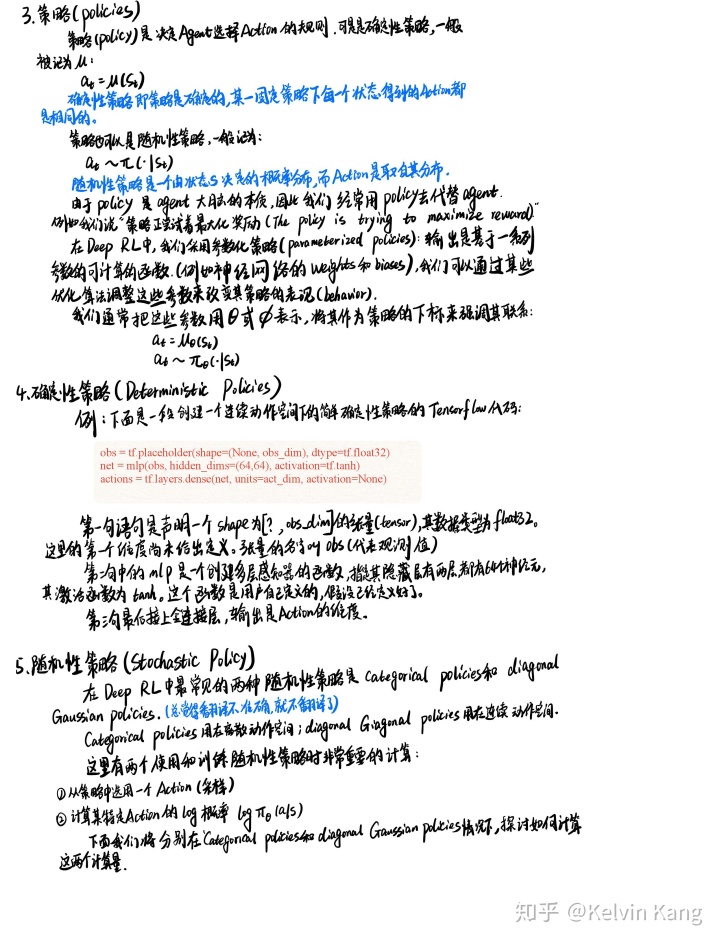 3.策略(policies)
策略(policy)是决定Agent选择Action的规则.可是是确定性策略,一般
被记为μ:
at = μ(st)
确定性策略即策略是确定的,某一固定策略下每一个状态得到的Action都
是相同的。
策略也可以是随机性策略,一般记为:
at ~ π(·|st)
随机性策略是一个由状态s决定的概率分布,而Action是取自其分布.
由于policy是agent大脑的本质,因此我们经常用policy去代替agent.
例如我们说"策略正尝试着最大化奖励(The policy is trying to maximize reward)"
在Deep RL中,我们采用参数化策略(parameterized policies):输出是基于一系列
参数的可计算的函数.(例如神经网络的weights和biases),我们可以通过某些
优化算法调整这些参数来改变其策略的表现(behavior).
我们通常把这些参数用θ或φ表示,将其作为策略的下标来强调其联系:
at = μθ(st)
at ~ πθ(·|st)
4.确定性策略(Deterministic Policies)
例:下面是一段创建一个连续动作空间下的简单确定性策略的Tensorflow代码:
obs = tf.placeholder(shape=(None, obs_dim), dtype=tf.float32)
net = mlp(obs, hidden_dims=(64,64), activation=tf.tanh)
actions = tf.layers.dense(net, units=act_dim, activation=None)
第一句语句是声明一个shape为[?,obs_dim]的张量(tensor),其数据类型为float32。
这里的第一个维度尚未给出定义。张量的名字叫obs(代表观测值)
第二句中的mlp是一个创建多层感知器的函数,指定其隐藏层有两层,都有64个神经元,
其激活函数为tanh。这个函数是用户自己定义的,假设已经定义好了。
第三句最后接上全连接层,输出是Action的维度。
5.随机性策略(Stochastic Policy)
在Deep RL中最常见的两种随机性策略是Categorical policies和diagonal
Gaussian policies.(总觉得翻译不准确,就不翻译了)
Categorical policies用在离散动作空间;diagonal Gingonal policies用在连续动作空间.
这里有两个使用和训练随机性策略时非常重要的计算:
①从策略中选用一个Action(采样)
②计算某特定Action的log概率 log πθ(a|s)
下面我们将分别在Categorical policies和diagonal Gaussian policies情况下,探讨如何计算
这两个计算量.
知乎 @Kelvin Kang